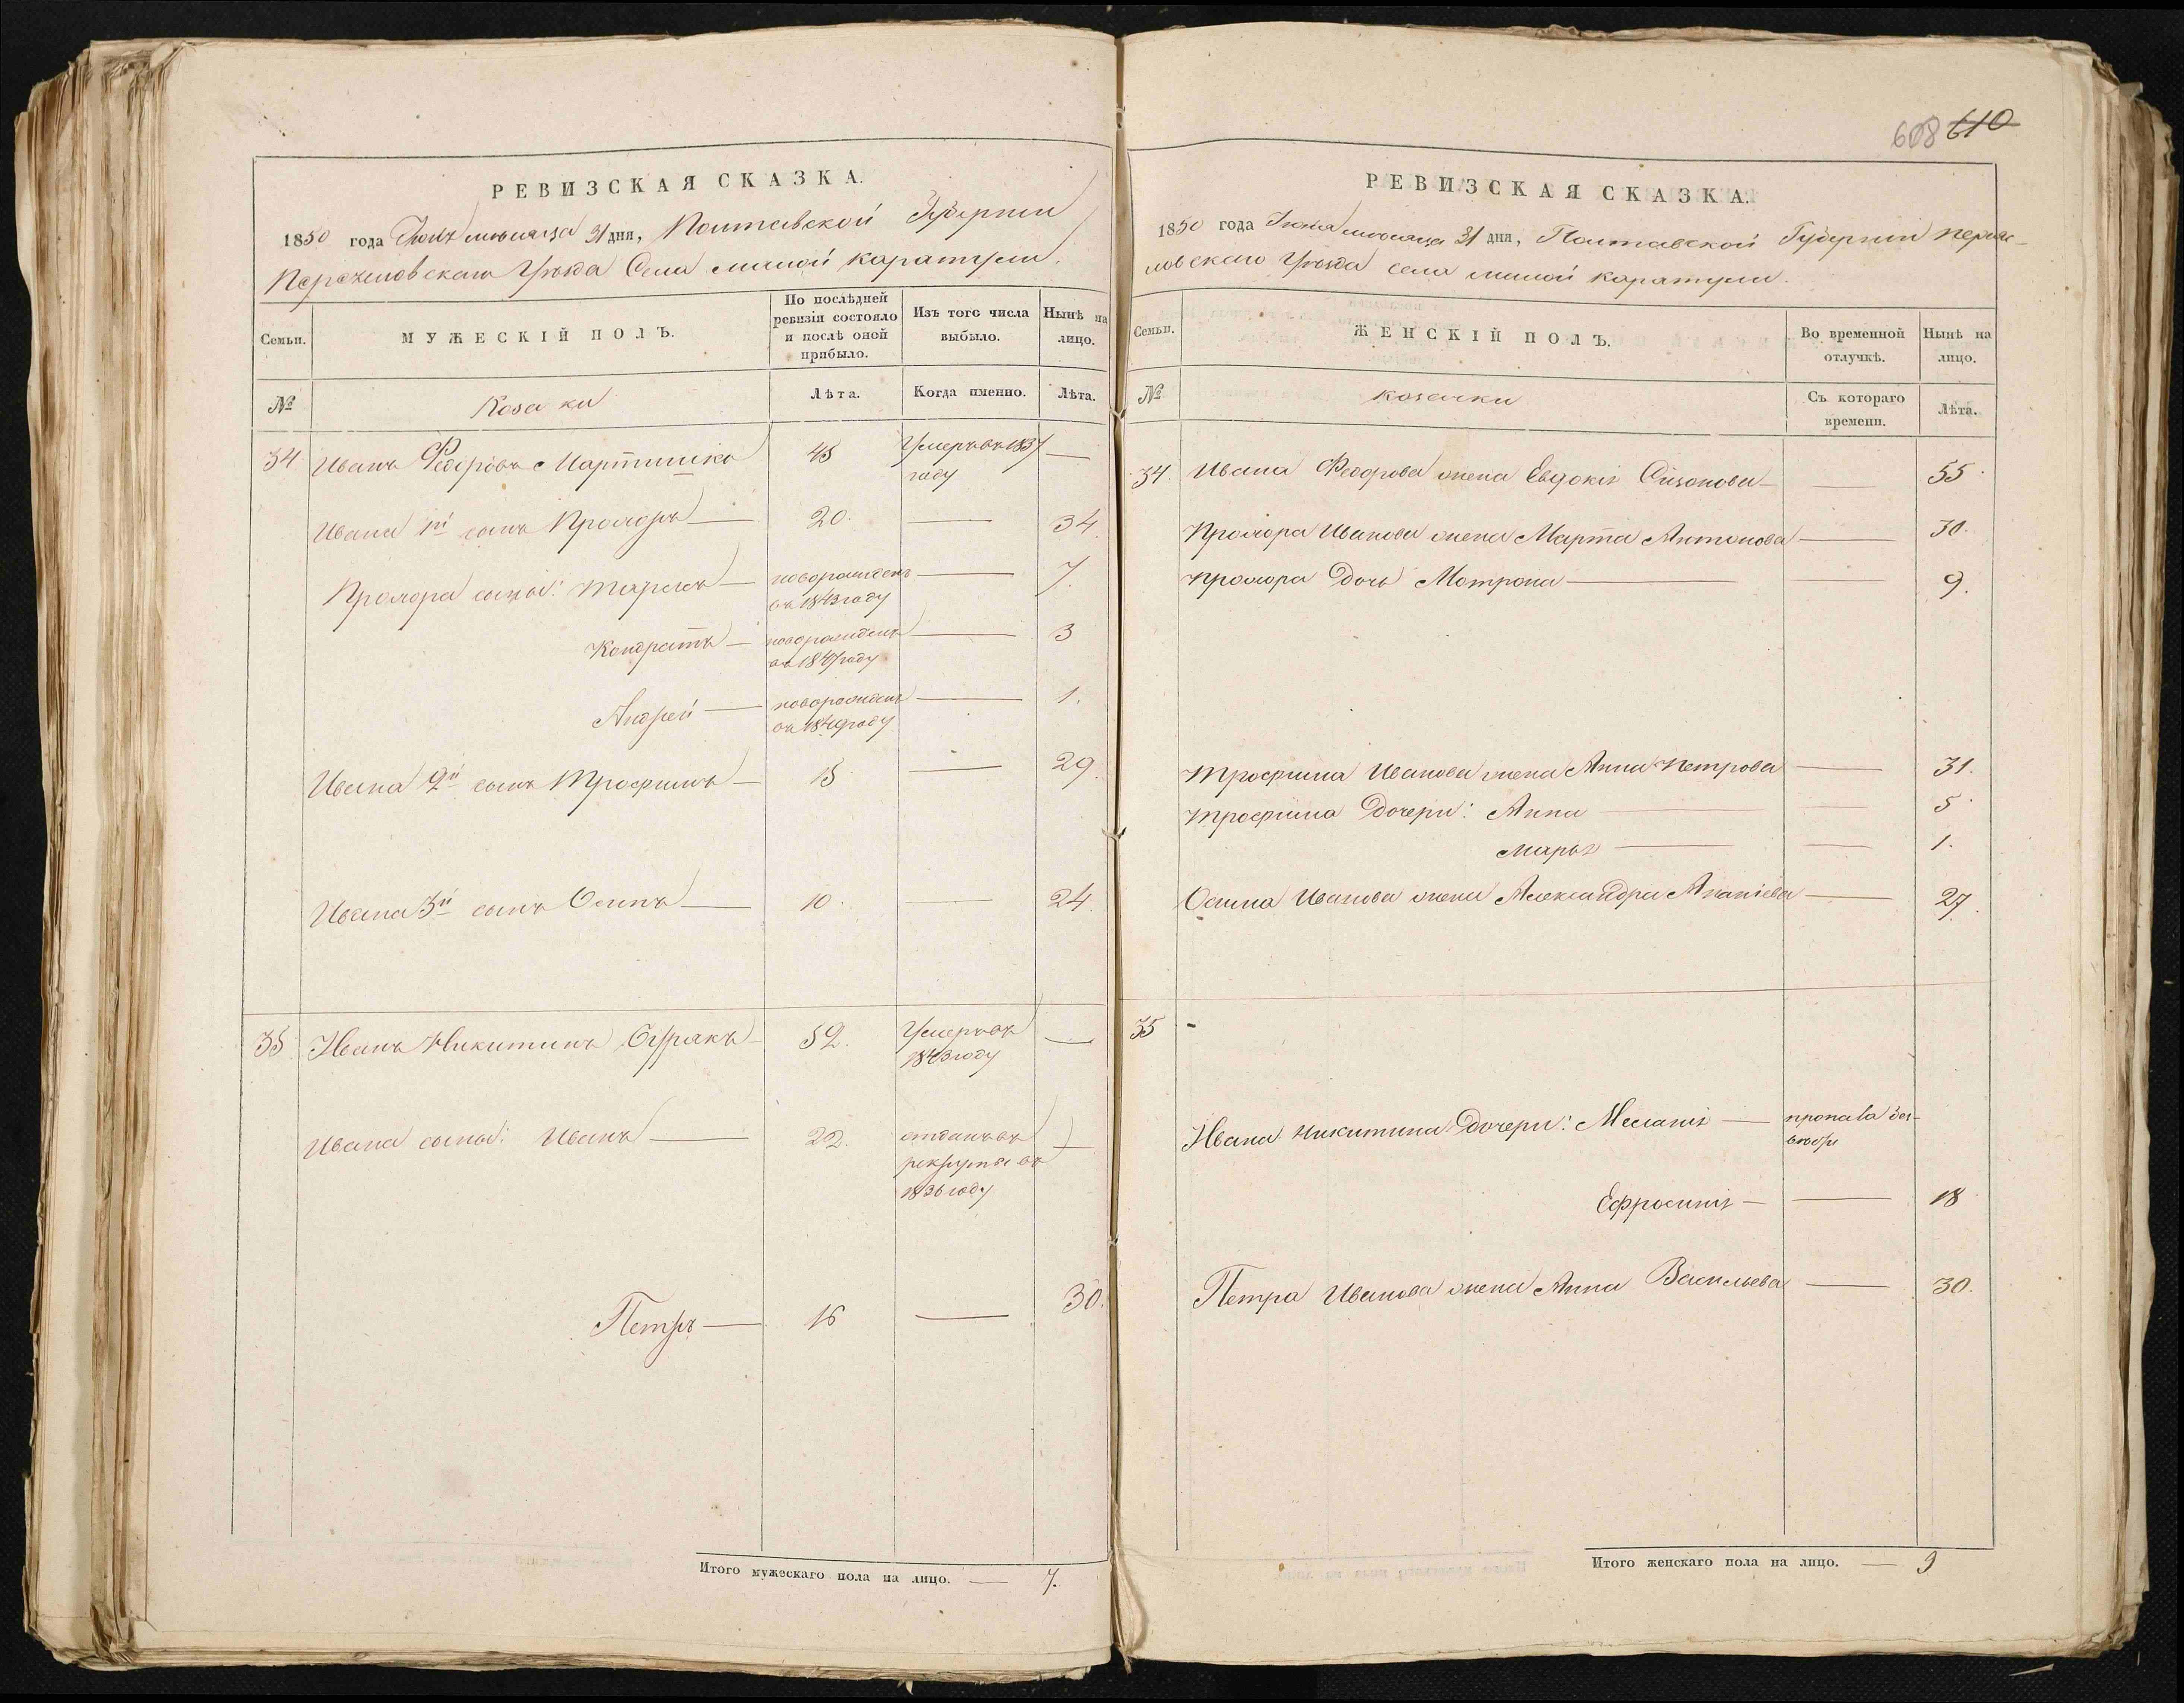 608 610
РЕВИЗСКАЯ СКАЗКА.
1850 года Июля месяца 31 дня, Полтавской Губернии
Переяславскаго Уезда Села малой каратули.
Семьи.
МУЖЕСКІЙ ПОЛЪ.
По послѣдней ревизіи состояло и послѣ оной прибыло.
Изъ того числа выбыло.
Нынѣ на лицо.
№
Козаки
Лѣта.
Когда именно.
Лѣта.
34 Иванъ Федоровъ Мартишко 45 Умеръ въ 1837 —
году
Ивана 1й сынъ Прохоръ — 20. — 34
Прохора сыны: Тарасъ — новорожденъ — 7.
въ 1843 году
Кондратъ — новорожденъ — 3
въ 1847 году
Андрей — новорожденъ — 1.
въ 1849 году
Ивана 2й сынъ Трофимъ — 15 — 29.
Ивана 3й сынъ Осипъ — 10. — 24.
35. Иванъ Никитинъ — 52. Умеръ въ —
1843 году
Ивана сыны: Иванъ — 22. отданъ въ —
рекруты въ
1836 году
Петръ — 16 — 30.
Итого мужескаго пола на лицо. — 7.
РЕВИЗСКАЯ СКАЗКА.
1850 года месяца 31 дня, Полтавской Губернии Переяс-
ловскаго Уезда села малой каратули.
Семьи.
ЖЕНСКІЙ ПОЛЪ.
Во временной отлучкѣ.
Нынѣ на лицо.
№
козачки
Съ котораго времени.
Лѣта.
34. Ивана Федорова жена Евдокія — — 55.
Прохора Иванова жена Марта Антонова — 30.
Прохора Дочь Мотрона — 9.
Трофима Иванова жена Анна Петрова — 31.
Трофима Дочери: Анна — — 5.
Марья — — 1.
Осипа Иванова жена Александра Ананіева — 27.
35 -
Ивана Никитина Дочери: Меланія —
Ефросинія — — 18
Петра Иванова жена Анна Васильева — 30.
Итого женскаго пола на лицо. — 9